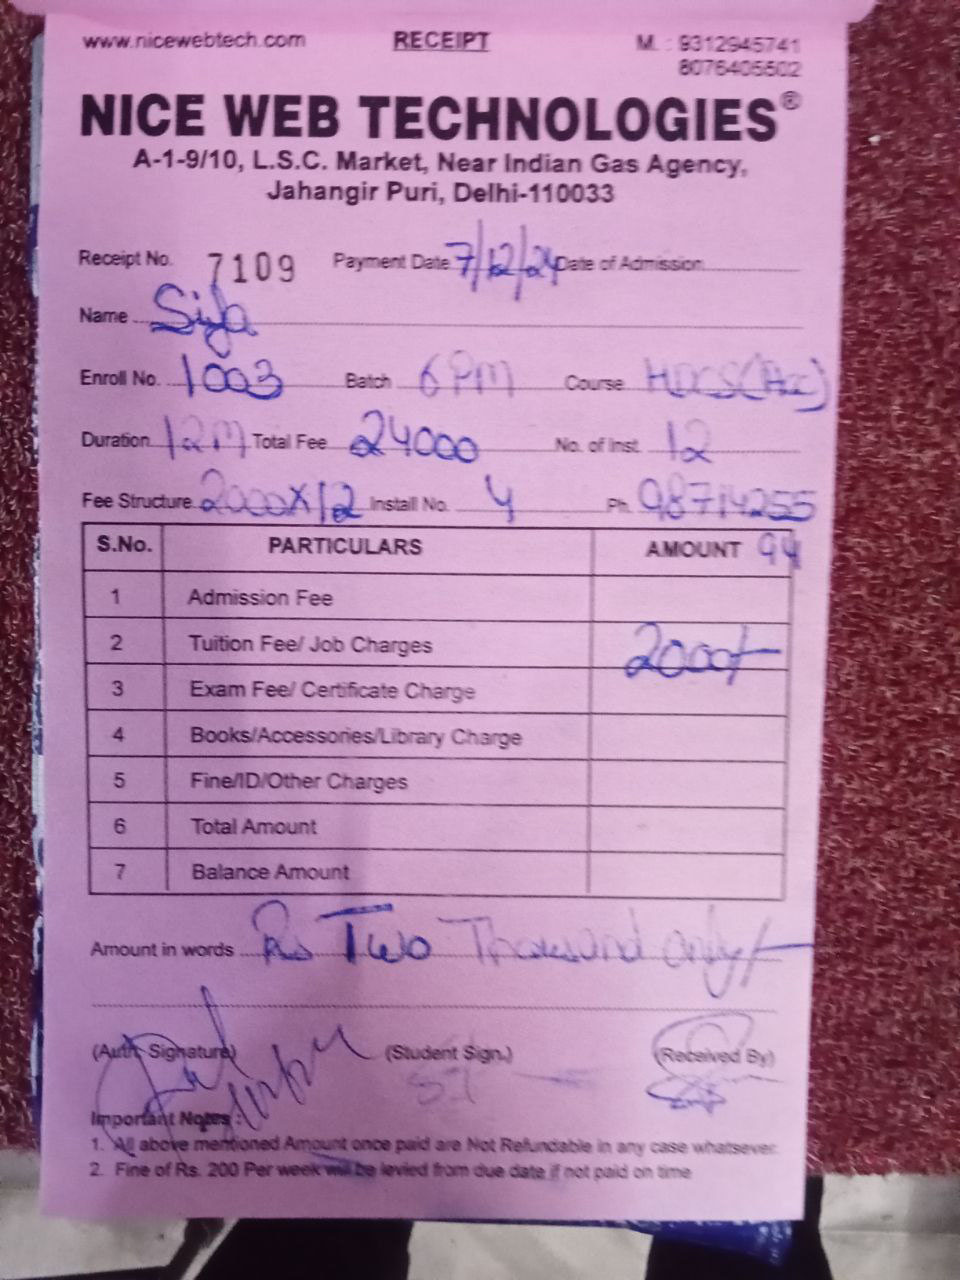 www.nicewebtech.com RECEIPT M. : 9312945741
8076405502
NICE WEB TECHNOLOGIES®
A-1-9/10, L.S.C. Market, Near Indian Gas Agency,
Jahangir Puri, Delhi-110033
Receipt No. 7109 Payment Date 7/12/24 Date of Admission
Name
Enroll No. 1003 Batch 6 PM Course HDCS(Acc)
Duration 12M Total Fee 24000 No. of Inst. 12
Fee Structure 2000X12 Install No. 4 Ph. 98714255
94
S.No. PARTICULARS AMOUNT
1 Admission Fee
2 Tuition Fee/ Job Charges 2000/-
3 Exam Fee/ Certificate Charge
4 Books/Accessories/Library Charge
5 Fine/ID/Other Charges
6 Total Amount
7 Balance Amount
Amount in words Rs Two Thousand only/-
(Auth. Signature) (Student Sign.) (Received By)
Important Notes :
1. All above mentioned Amount once paid are Not Refundable in any case whatsever.
2. Fine of Rs. 200 Per week will be levied from due date if not paid on time